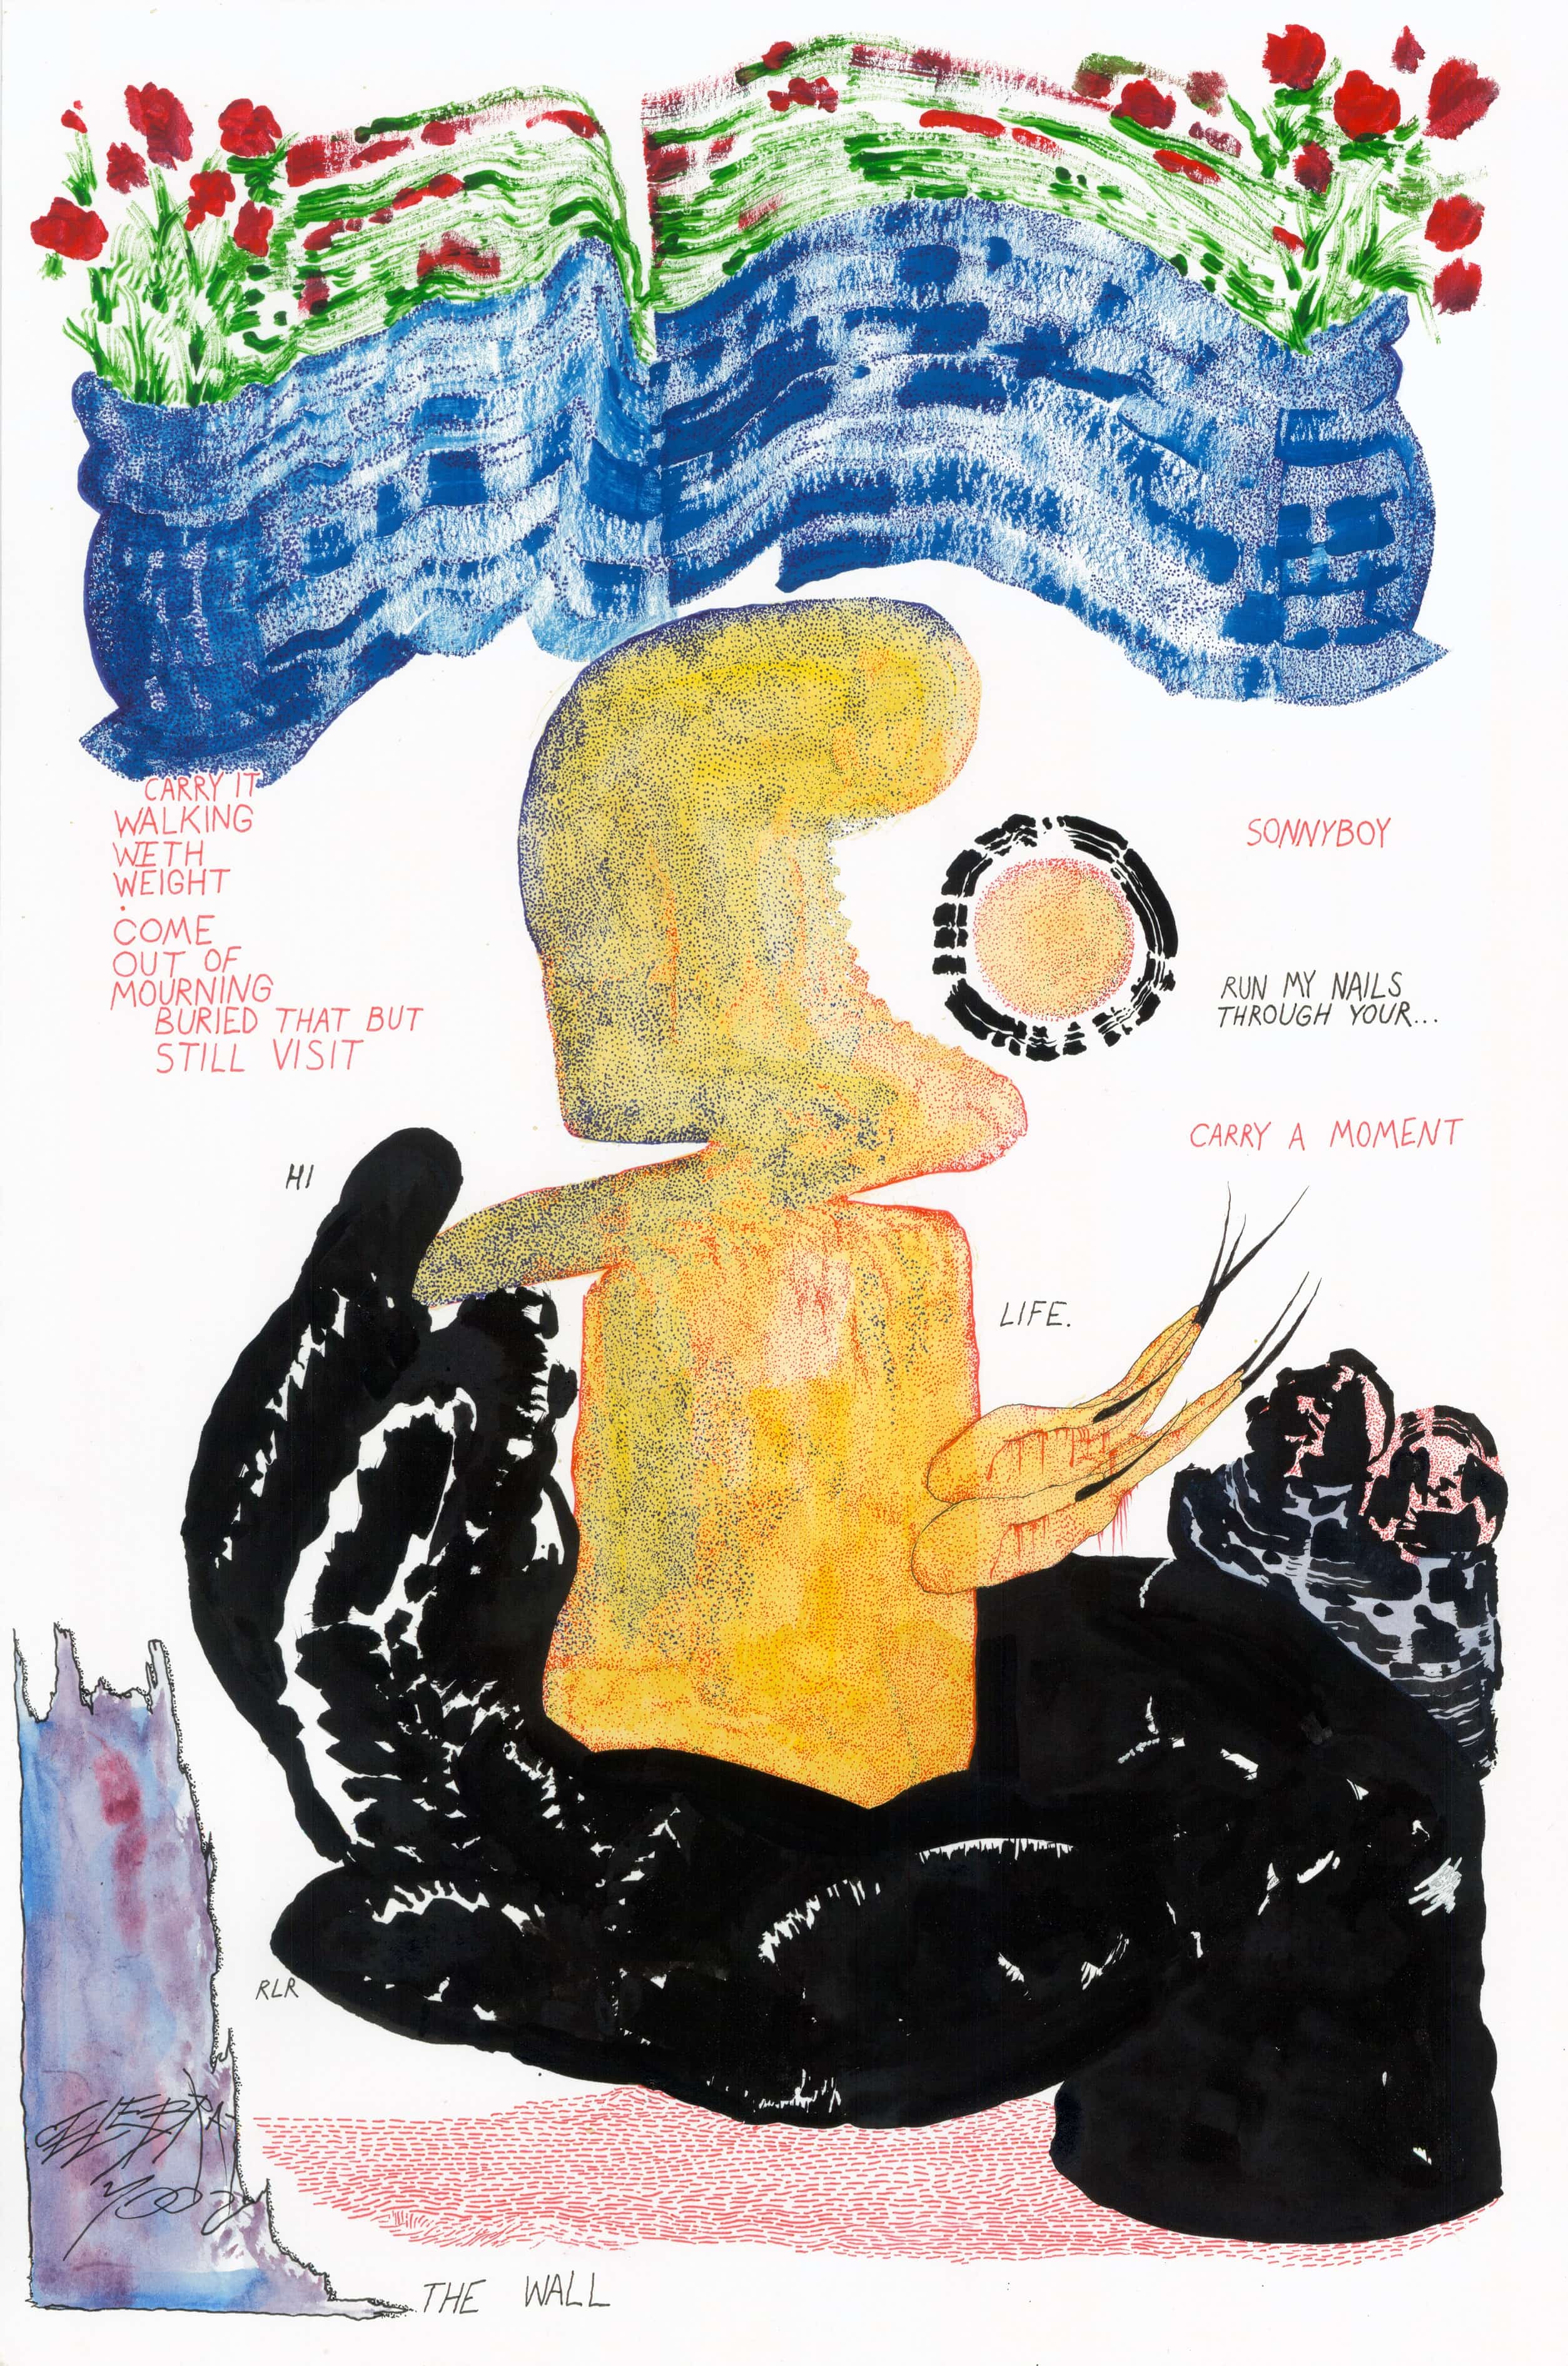 CARRY IT
WALKING
WETH
WEIGHT
.
COME
OUT OF
MOURNING
BURIED THAT BUT
STILL VISIT
SONNYBOY
RUN MY NAILS
THROUGH YOUR...
CARRY A MOMENT
HI
LIFE.
RLR
THE WALL